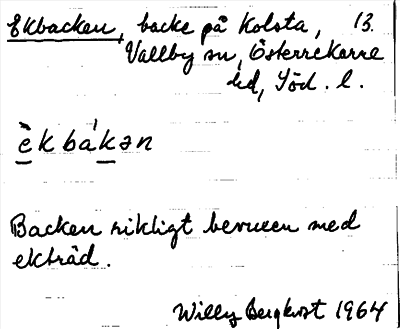 Ekbacken, backe på Kolsta, 13.
Vallby sn, Österrekarne
hd, Söd. l.
èkbá̀kən
Backen rikligt bevuxen med
ekträd.
Willy Bergkvist 1964